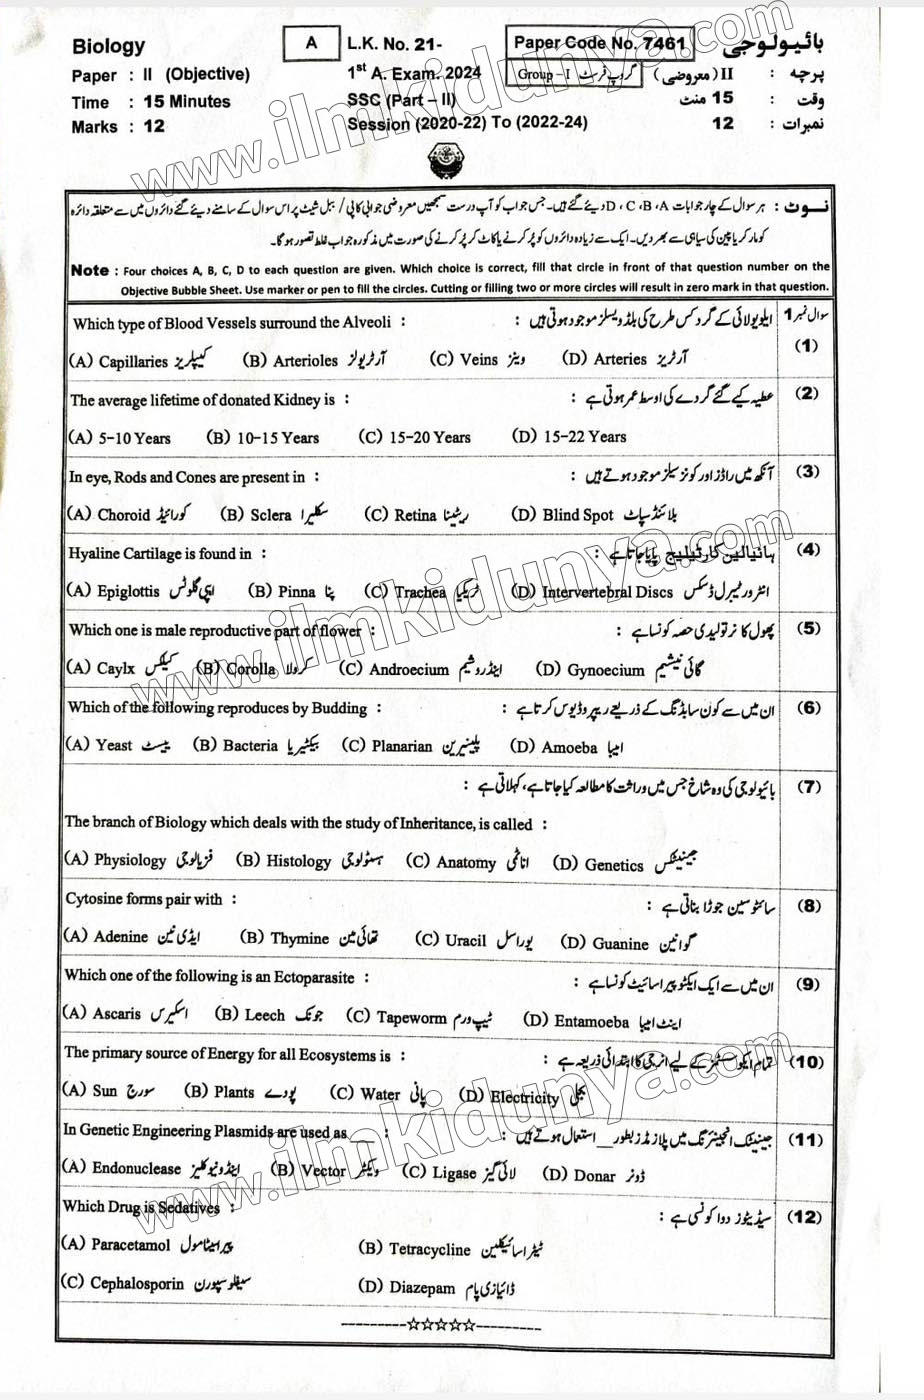 Biology
A
L.K. No. 21-
Paper Code No. 7461
بائیولوجی
Paper : II (Objective)
1st A. Exam. 2024
Group – I گروپ فرسٹ
پرچہ : II (معروضی)
Time : 15 Minutes
SSC (Part – II)
وقت : 15 منٹ
Marks : 12
Session (2020-22) To (2022-24)
نمبرات : 12
نوٹ : ہر سوال کے چار جوابات D ، C ، B ، A دیئے گئے ہیں۔ جس جواب کو آپ درست سمجھیں معروضی جوابی کاپی / ببل شیٹ پر اس سوال کے سامنے دیئے گئے دائروں میں سے متعلقہ دائرہ
کو مارکر یا پین کی سیاہی سے بھر دیں۔ ایک سے زیادہ دائروں کو پُر کرنے یا کاٹ کر پُر کرنے کی صورت میں مذکورہ جواب غلط تصور ہوگا۔
Note : Four choices A, B, C, D to each question are given. Which choice is correct, fill that circle in front of that question number on the
Objective Bubble Sheet. Use marker or pen to fill the circles. Cutting or filling two or more circles will result in zero mark in that question.
Which type of Blood Vessels surround the Alveoli : ایلویولائی کے گرد کس طرح کی بلڈ ویسلز موجود ہوتی ہیں : سوال نمبر 1
(1)
(A) Capillaries کیپلریز (B) Arterioles آرٹریولز (C) Veins وینز (D) Arteries آرٹریز
The average lifetime of donated Kidney is : عطیہ کیے گئے گردے کی اوسط عمر ہوتی ہے : (2)
(A) 5-10 Years (B) 10-15 Years (C) 15-20 Years (D) 15-22 Years
In eye, Rods and Cones are present in : آنکھ میں راڈز اور کونز سیلز موجود ہوتے ہیں : (3)
(A) Choroid کورائیڈ (B) Sclera سکلیرا (C) Retina ریٹینا (D) Blind Spot بلائنڈ سپاٹ
Hyaline Cartilage is found in : ہائیالین کارٹیلیج پایا جاتا ہے : (4)
(A) Epiglottis اپی گلوٹس (B) Pinna پنا (C) Trachea ٹریکیا (D) Intervertebral Discs انٹرورٹیبرل ڈسکس
Which one is male reproductive part of flower : پھول کا نر تولیدی حصہ کونسا ہے : (5)
(A) Caylx کیلکس (B) Corolla کرولا (C) Androecium اینڈروشیم (D) Gynoecium گائی نیشیم
Which of the following reproduces by Budding : ان میں سے کون سا بڈنگ کے ذریعے ریپروڈیوس کرتا ہے : (6)
(A) Yeast ییسٹ (B) Bacteria بیکٹیریا (C) Planarian پلینیرین (D) Amoeba امیبا
بائیولوجی کی وہ شاخ جس میں وراثت کا مطالعہ کیا جاتا ہے، کہلاتی ہے : (7)
The branch of Biology which deals with the study of Inheritance, is called :
(A) Physiology فزیالوجی (B) Histology ہسٹولوجی (C) Anatomy اناٹمی (D) Genetics جینیٹکس
Cytosine forms pair with : سائٹوسین جوڑا بناتی ہے : (8)
(A) Adenine ایڈی نین (B) Thymine تھائی مین (C) Uracil یوراسل (D) Guanine گوانین
Which one of the following is an Ectoparasite : ان میں سے ایک ایکٹوپیراسائیٹ کونسا ہے : (9)
(A) Ascaris اسکیرس (B) Leech جونک (C) Tapeworm ٹیپ ورم (D) Entamoeba اینٹ امیبا
The primary source of Energy for all Ecosystems is : تمام ایکوسسٹمز کے لیے انرجی کا ابتدائی ذریعہ ہے : (10)
(A) Sun سورج (B) Plants پودے (C) Water پانی (D) Electricity بجلی
In Genetic Engineering Plasmids are used as ___ : جینیٹک انجینئرنگ میں پلازمڈز بطور __ استعمال ہوتے ہیں : (11)
(A) Endonuclease اینڈونیوکلیز (B) Vector ویکٹر (C) Ligase لائی گیز (D) Donar ڈونر
Which Drug is Sedatives : سیڈیٹوز دوا کونسی ہے : (12)
(A) Paracetamol پیراسیٹامول (B) Tetracycline ٹیٹراسائیکلین
(C) Cephalosporin سیفلوسپورن (D) Diazepam ڈائیازی پام
---------☆☆☆☆☆---------
www.ilmkidunya.com
www.ilmkidunya.com
www.ilmkidunya.com